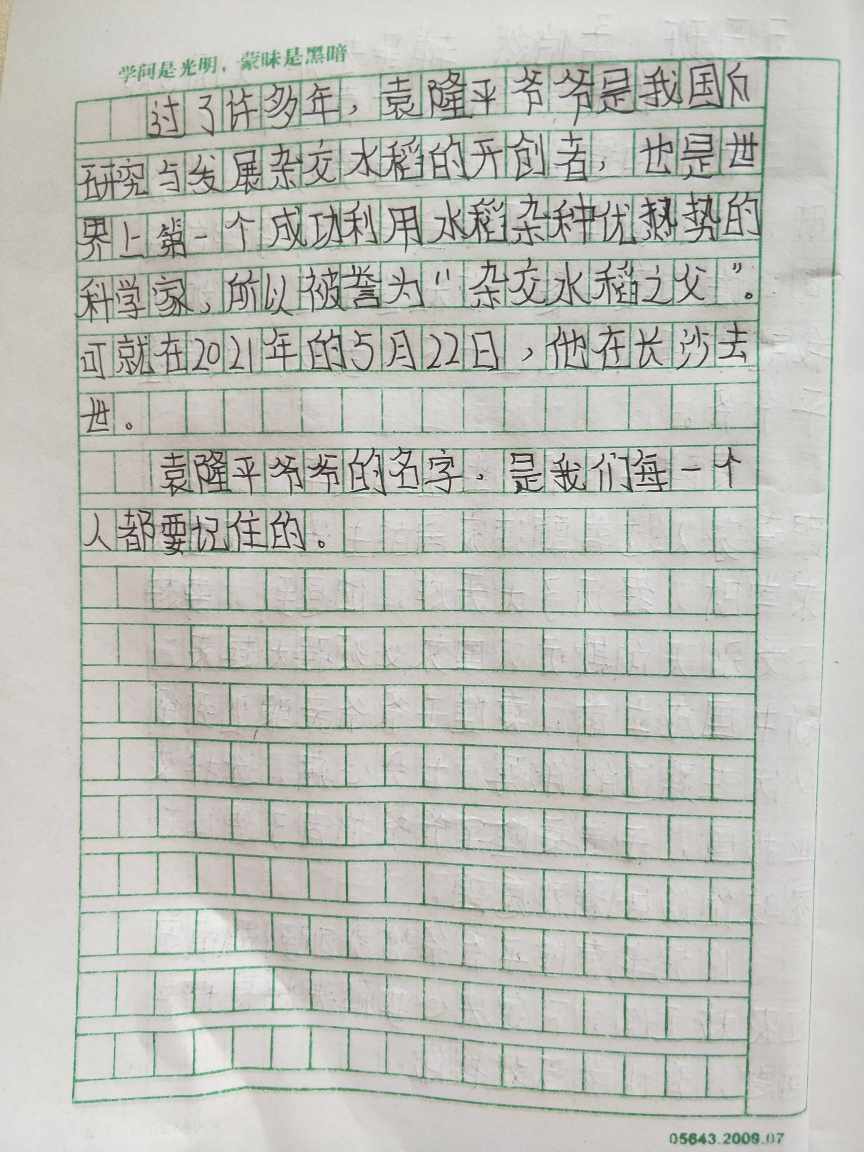 学问是光明，蒙昧是黑暗
过了许多年，袁隆平爷爷是我国
研究与发展杂交水稻的开创者，也是世
界上第一个成功利用水稻杂种优热势的
科学家，所以被誉为“杂交水稻之父”。
可就在2021年的5月22日，他在长沙去
世。
袁隆平爷爷的名字，是我们每一个
人都要记住的。
05643.2009.07